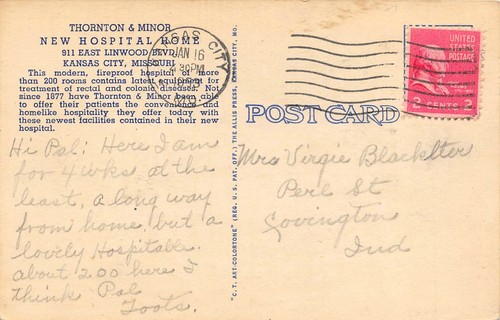 THORNTON & MINOR
NEW HOSPITAL HOME
911 EAST LINWOOD BLVD.
KANSAS CITY, MISSOURI
This modern, fireproof hospital of more
than 200 rooms contains latest equipment for
treatment of rectal and colonic diseases. Not
since 1877 have Thornton & Minor been able
to offer their patients the convenience and
homelike hospitality they offer today with
these newest facilities contained in their new
hospital.
KANSAS CITY
JAN 16
4:30PM
UNITED
STATES
POSTAGE
2 CENTS 2
POST CARD
"C.T. ART-COLORTONE" (REG. U. S. PAT. OFF.) THE ALLIS PRESS, KANSAS CITY, MO.
Hi Pal: Here I am
for 4 wks, at the
least, a long way
from home, but a
lovely Hospitable.
about 200 here I
think Pal
Toots.
Mrs Virgie Blacklter
Perl St
Covington
Ind